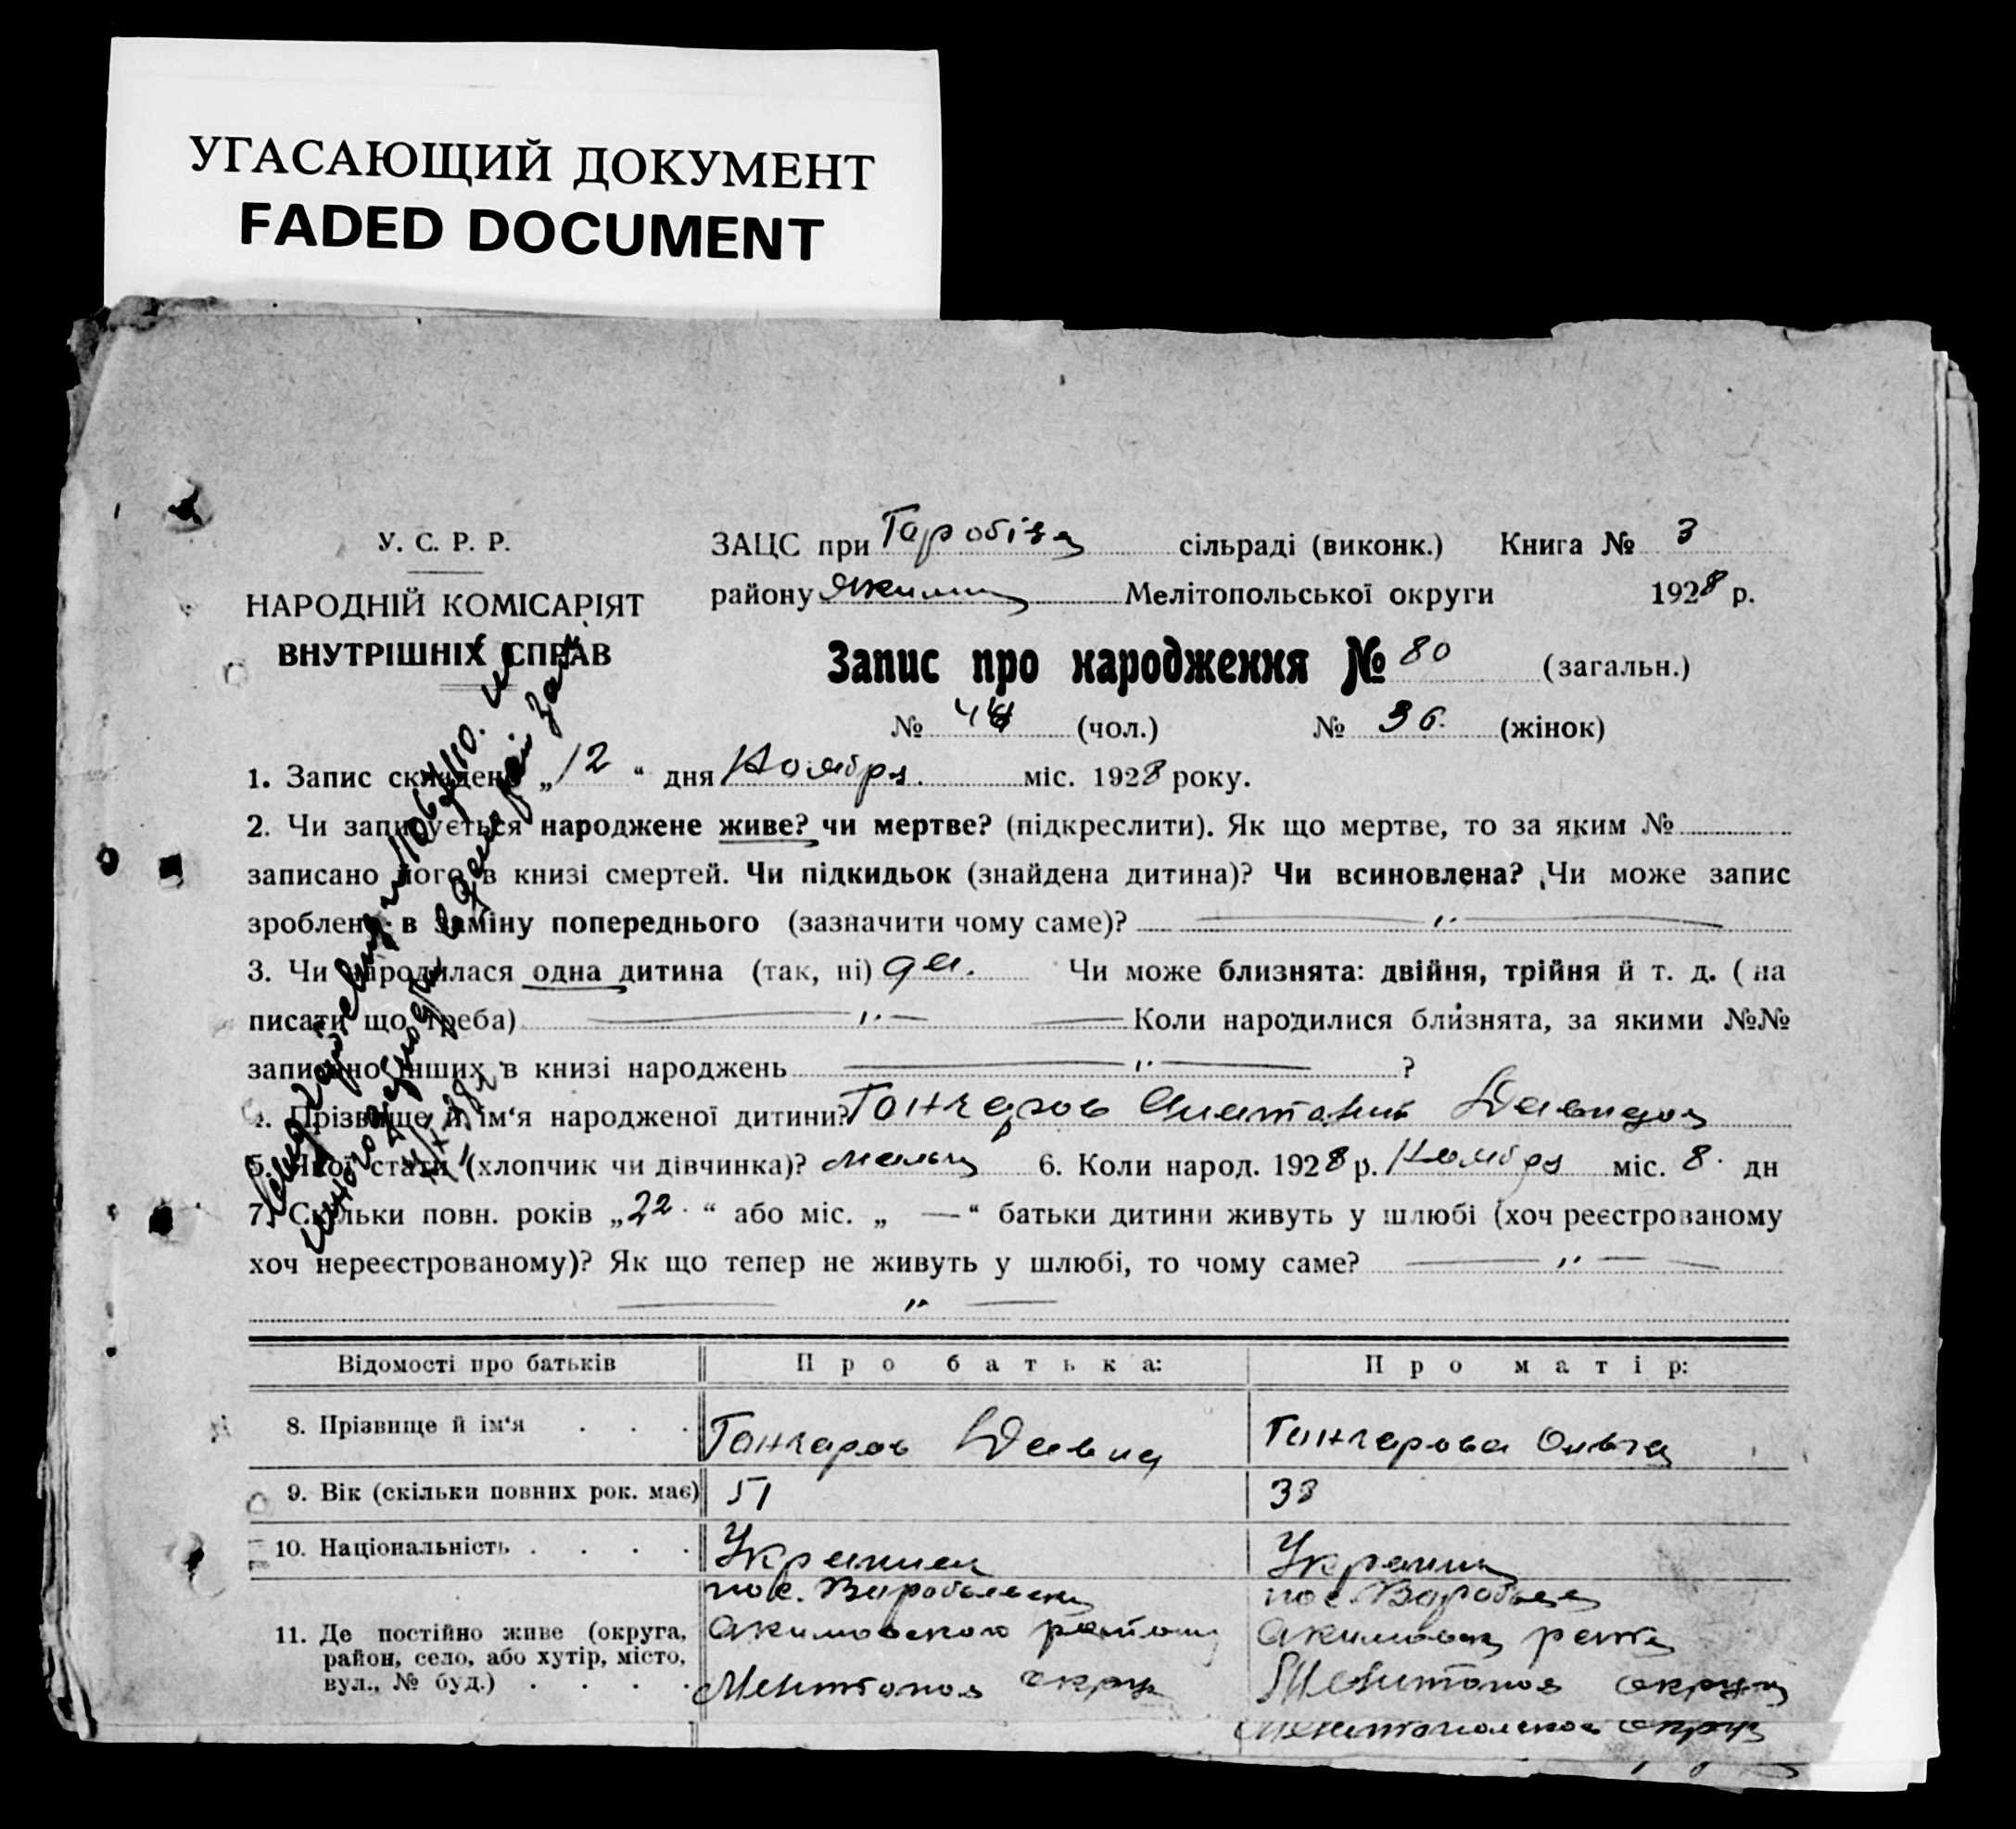 УГАСАЮЩИЙ ДОКУМЕНТ
FADED DOCUMENT
У. С. Р. Р.
НАРОДНІЙ КОМІСАРІЯТ
ВНУТРІШНІХ СПРАВ
ЗАЦС при сільраді (виконк.) Книга № 3
району Якими Мелітопольської округи 1928 р.
Запис про народження № 80 (загальн.)
№ 44 (чол.) № 36. (жінок)
1. Запис складено „12 “ дня Ноября. міс. 1928 року.
2. Чи записується народжене живе? чи мертве? (підкреслити). Як що мертве, то за яким №
записано його в книзі смертей. Чи підкидьок (знайдена дитина)? Чи всиновлена? Чи може запис
зроблено в заміну попереднього (зазначити чому саме)? — „ —
3. Чи народилася одна дитина (так, ні) да. Чи може близнята: двійня, трійня й т. д. ( на
писати що треба) — „ — Коли народилися близнята, за якими №№
записано інших в книзі народжень — „ — ?
4. Прізвище й ім‘я народженої дитини? Гончаров Анатолий Давидов
5. Якої стати (хлопчик чи дівчинка)? мальч 6. Коли народ. 1928 р. Ноября міс. 8. дн
7. Скільки повн. років „22. “ або міс. „ — “ батьки дитини живуть у шлюбі (хоч реєстрованому
хоч нереєстрованому)? Як що тепер не живуть у шлюбі, то чому саме? — „ —
— „ —
Відомості про батьків Про батька: Про матір:
8. Прізвище й ім‘я . . . Гончаров Давид Гончарова Ольга
9. Вік (скільки повних рок. має) 51 38
10. Національність . . . . Украинец Украинк
11. Де постійно живе (округа, район, село, або хутір, місто, вул., № буд.) . . . .
пос. Акимовского района
Мелитопол округ
пос. Акимовск
Мелитопол округ
Мелитопольской округ